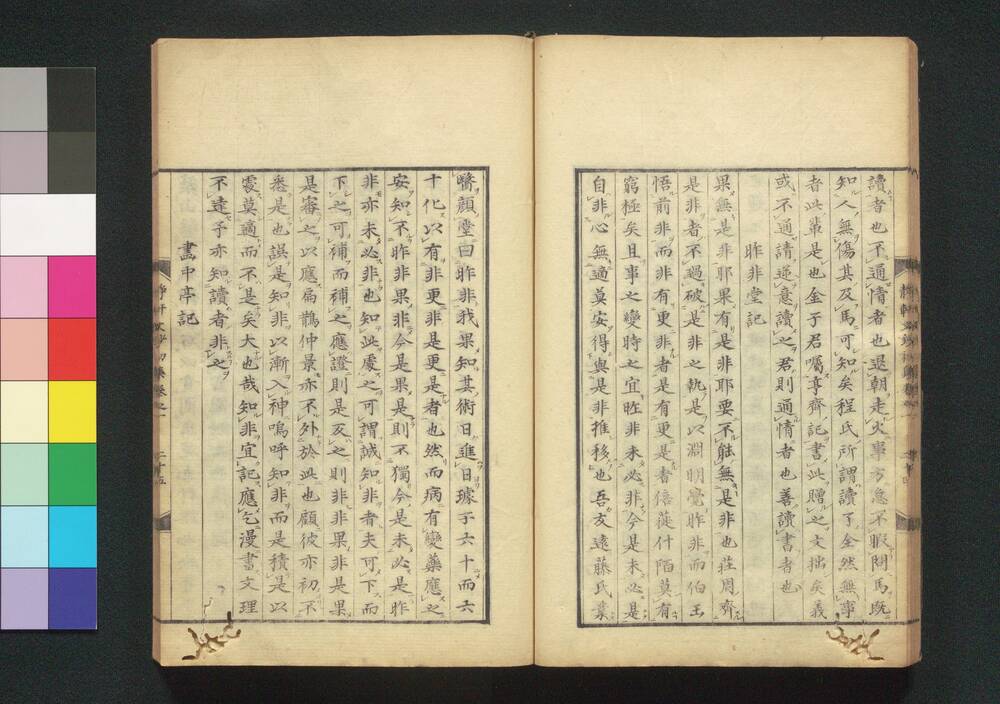 讀者也不通情者也退朝走火事方急不暇問馬既
知人無傷其及馬可知矣程氏所謂讀了全然無事
者此輩是也金子君囑享齊記書此贈之文拙矣義
或不通請逆意讀之君則通情者也善讀書者也
昨非堂記
果無是非耶果有是非耶要不能無是非也莊周齊
是非者不過破是非之執是以淵明覺昨非而伯玉
悟前非而非有更非者是有更是者倍蓰什陌莫有
窮極矣且事之變時之宜昨非未必非今是未必是
自非心無適莫安得與是非推移也吾友遠藤氏業
醫顏堂曰昨非我果知其術日進日璩子六十而六
十化以有非更非是更是者也然而病有變藥應之
安知不昨非果非今是果是則不獨今是未必是昨
非亦未必非也知此處之可謂誠知非者夫可下而
下之可補而補之應證則是反之則非非果非是果
是審之以應扁鵲仲景亦不外於此也顧彼亦初不
悉是也誤是知非以漸入神嗚呼知非而是積是以
處莫適而不是矣大也哉知非宜記應乞漫書文理
不達予亦知讀者非之
畫中亭記